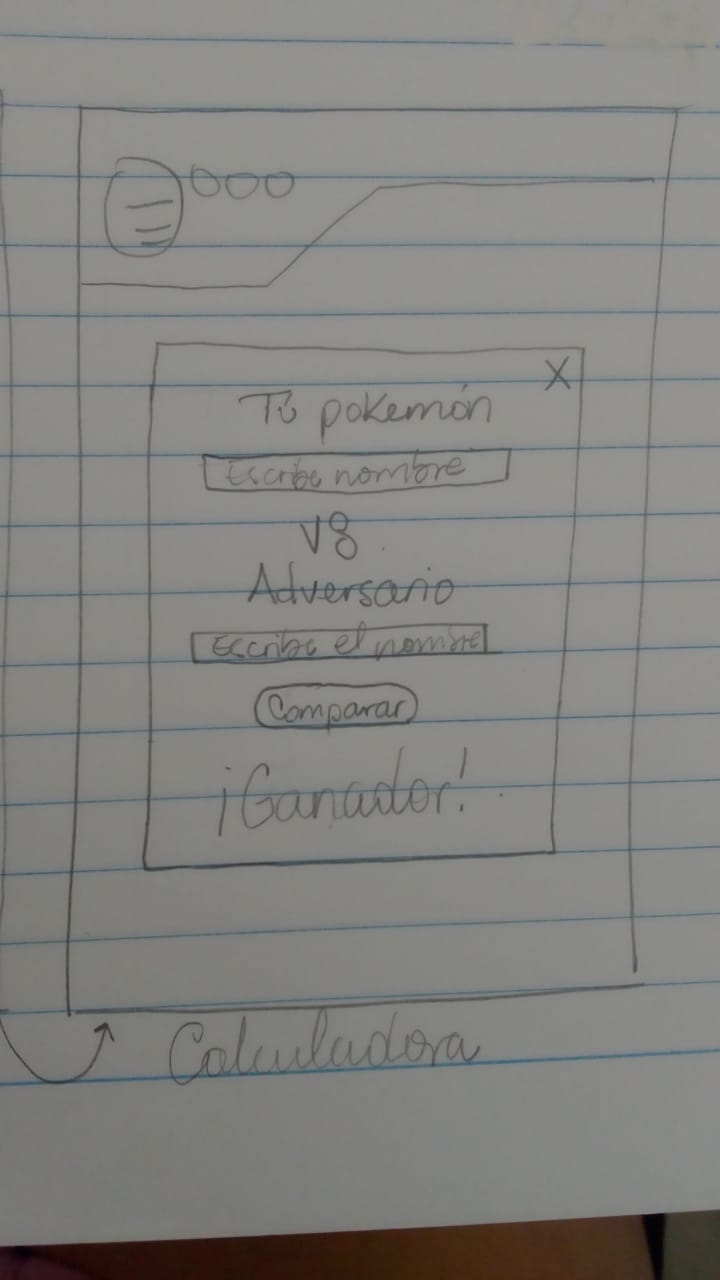 X
Tú pokemón
Escribe nombre
VS
Adversario
Escribe el nombre
Comparar
¡Ganador!
Calculadora